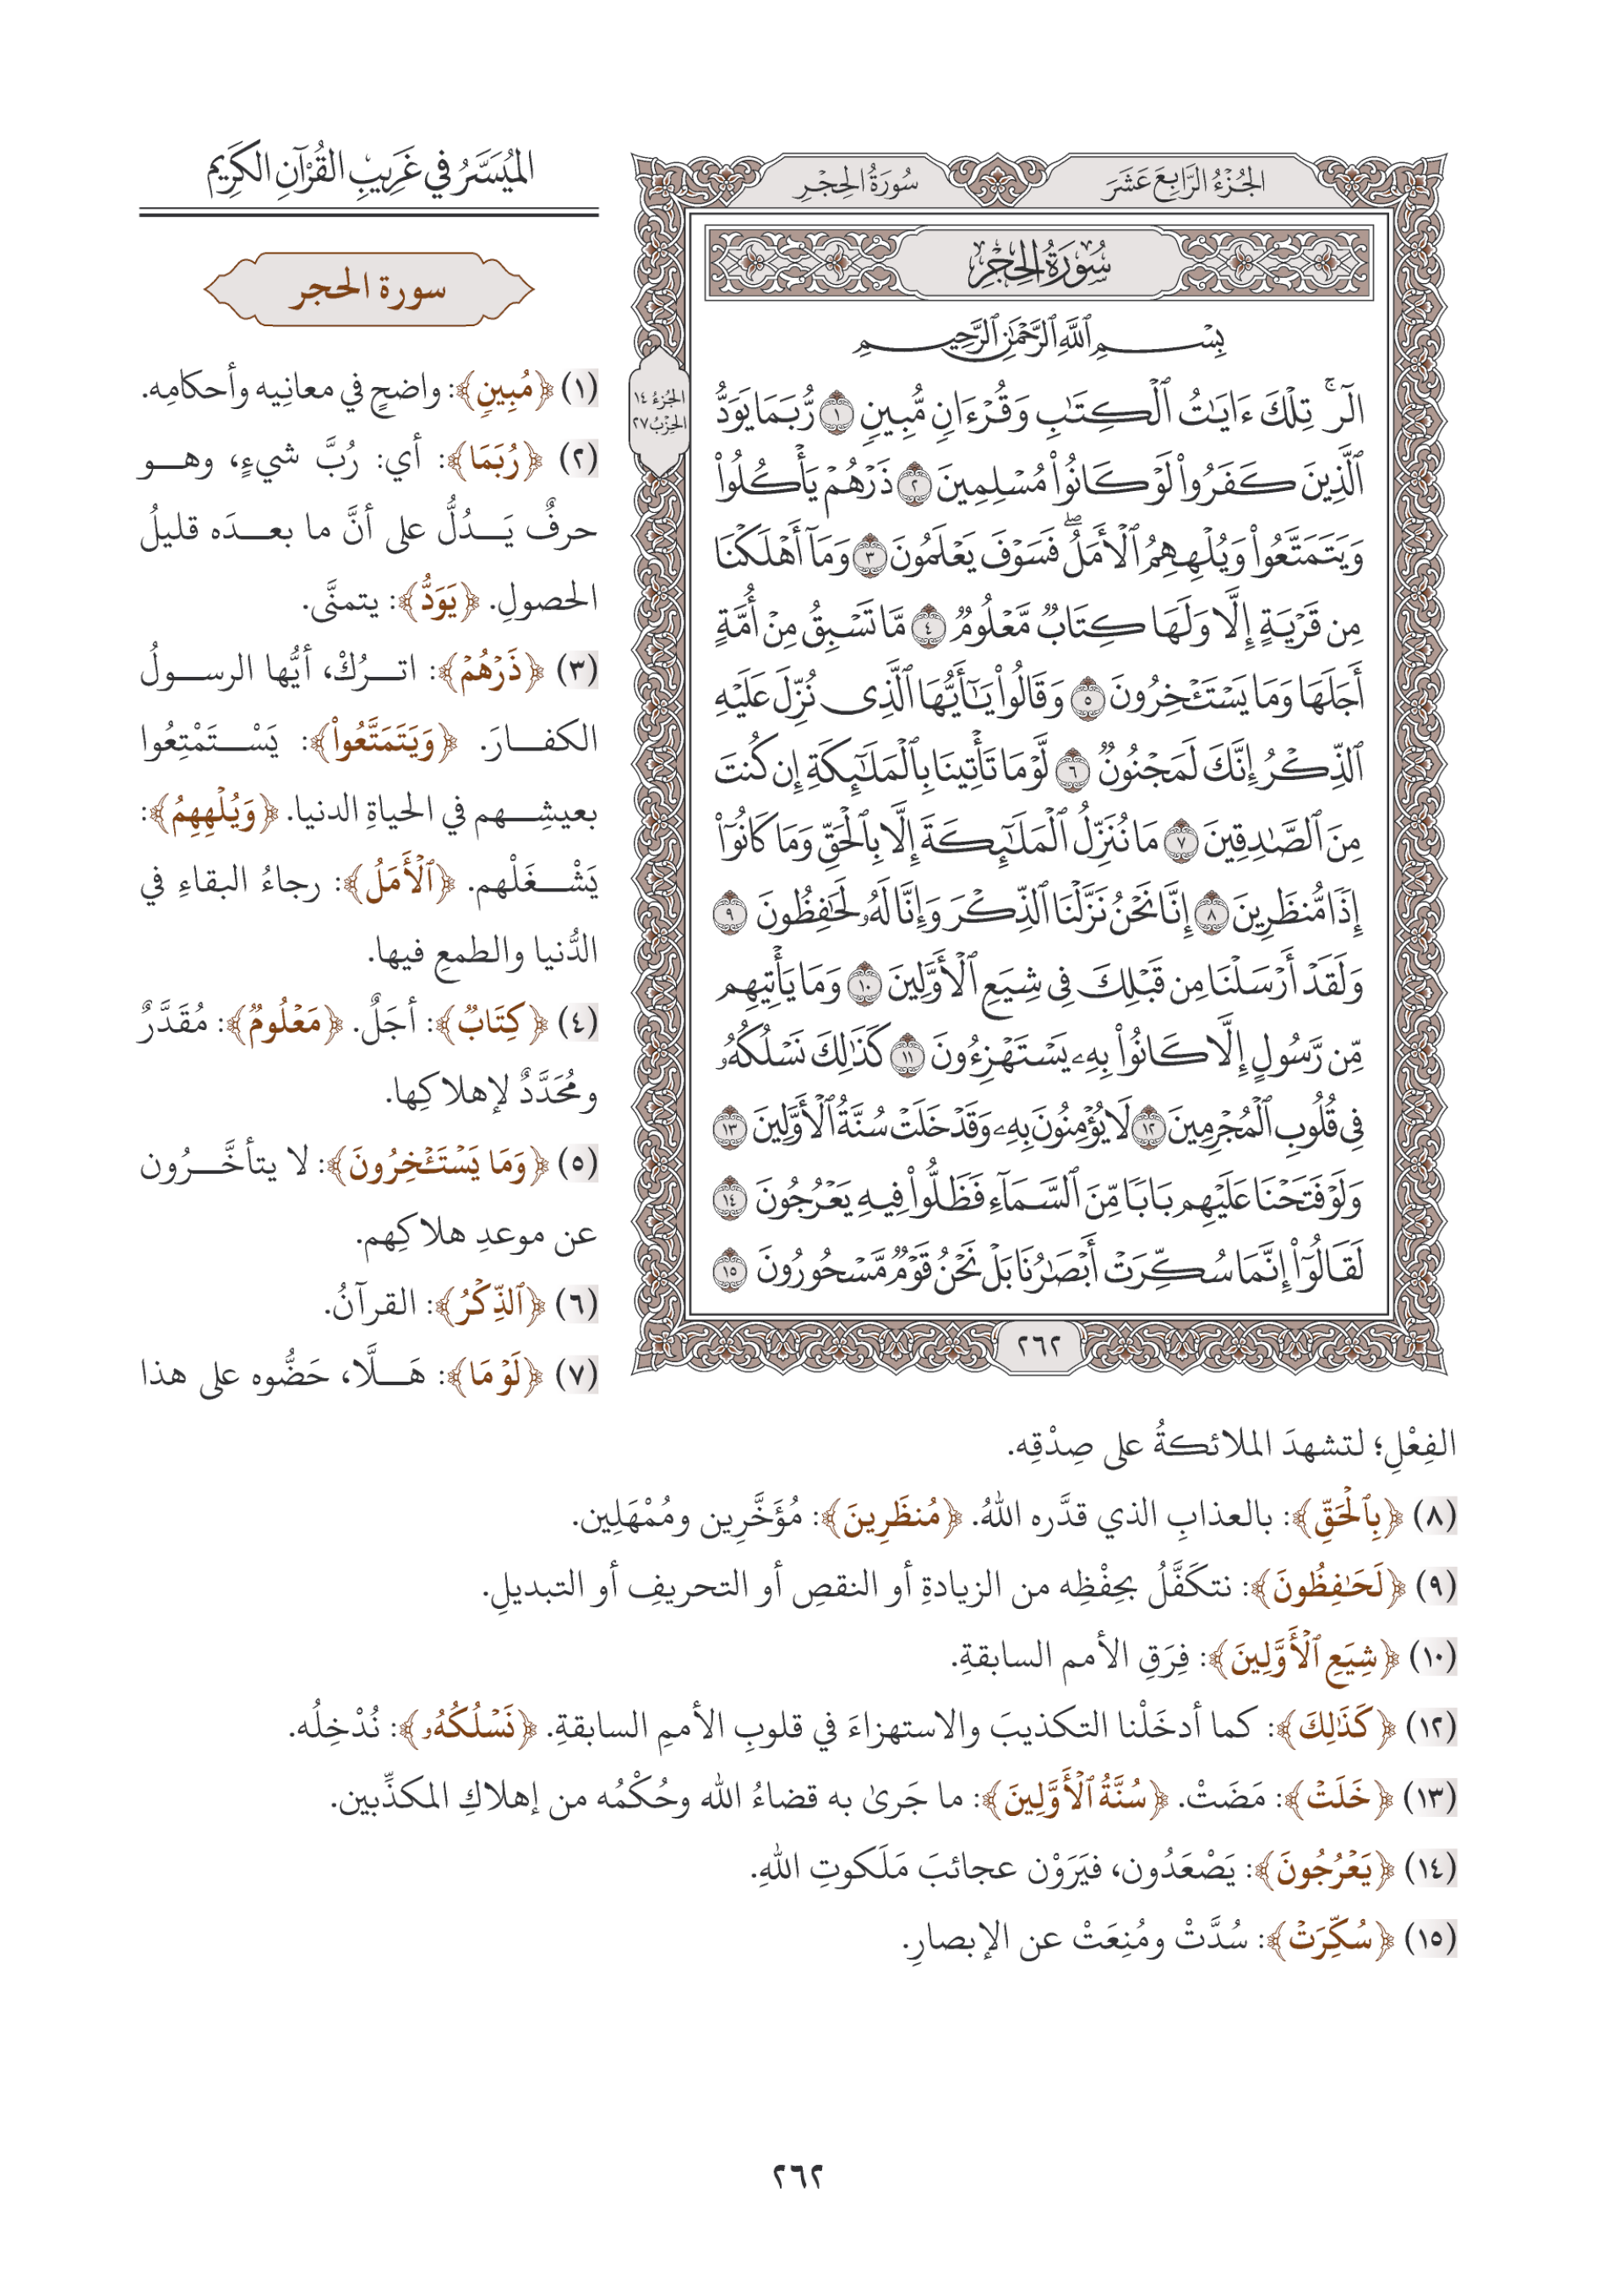 الجُزْءُ الرَّابِعَ عَشَرَ
سُورَةُ الحِجْرِ
سُورَةُ الحِجْرِ
بِسْمِ ٱللَّهِ ٱلرَّحْمَٰنِ ٱلرَّحِيمِ
الٓرۚ تِلْكَ ءَايَٰتُ ٱلْكِتَٰبِ وَقُرْءَانٍ مُّبِينٍ ١ رُّبَمَا يَوَدُّ
ٱلَّذِينَ كَفَرُوا۟ لَوْ كَانُوا۟ مُسْلِمِينَ ٢ ذَرْهُمْ يَأْكُلُوا۟
وَيَتَمَتَّعُوا۟ وَيُلْهِهِمُ ٱلْأَمَلُۖ فَسَوْفَ يَعْلَمُونَ ٣ وَمَآ أَهْلَكْنَا
مِن قَرْيَةٍ إِلَّا وَلَهَا كِتَابٌ مَّعْلُومٌ ٤ مَّا تَسْبِقُ مِنْ أُمَّةٍ
أَجَلَهَا وَمَا يَسْتَـْٔخِرُونَ ٥ وَقَالُوا۟ يَٰٓأَيُّهَا ٱلَّذِى نُزِّلَ عَلَيْهِ
ٱلذِّكْرُ إِنَّكَ لَمَجْنُونٌ ٦ لَّوْ مَا تَأْتِينَا بِٱلْمَلَٰٓئِكَةِ إِن كُنتَ
مِنَ ٱلصَّٰدِقِينَ ٧ مَا نُنَزِّلُ ٱلْمَلَٰٓئِكَةَ إِلَّا بِٱلْحَقِّ وَمَا كَانُوٓا۟
إِذًا مُّنظَرِينَ ٨ إِنَّا نَحْنُ نَزَّلْنَا ٱلذِّكْرَ وَإِنَّا لَهُۥ لَحَٰفِظُونَ ٩
وَلَقَدْ أَرْسَلْنَا مِن قَبْلِكَ فِى شِيَعِ ٱلْأَوَّلِينَ ١٠ وَمَا يَأْتِيهِم
مِّن رَّسُولٍ إِلَّا كَانُوا۟ بِهِۦ يَسْتَهْزِءُونَ ١١ كَذَٰلِكَ نَسْلُكُهُۥ
فِى قُلُوبِ ٱلْمُجْرِمِينَ ١٢ لَا يُؤْمِنُونَ بِهِۦ وَقَدْ خَلَتْ سُنَّةُ ٱلْأَوَّلِينَ ١٣
وَلَوْ فَتَحْنَا عَلَيْهِم بَابًا مِّنَ ٱلسَّمَآءِ فَظَلُّوا۟ فِيهِ يَعْرُجُونَ ١٤
لَقَالُوٓا۟ إِنَّمَا سُكِّرَتْ أَبْصَٰرُنَا بَلْ نَحْنُ قَوْمٌ مَّسْحُورُونَ ١٥
٢٦٢
الجُزءُ ١٤
الحِزْبُ ٢٧
المُيَسَّرُ في غَرِيبِ القُرْآنِ الكَرِيمِ
سورة الحجر
(١) ﴿مُبِينٍ﴾: واضحٍ في معانِيه وأحكامِه.
(٢) ﴿رُبَمَا﴾: أي: رُبَّ شيءٍ، وهو
حرفٌ يَدُلُّ على أنَّ ما بعدَه قليلُ
الحصولِ. ﴿يَوَدُّ﴾: يتمنَّى.
(٣) ﴿ذَرْهُمْ﴾: اتركْ، أيُّها الرسولُ
الكفارَ. ﴿وَيَتَمَتَّعُوا۟﴾: يَسْتَمْتِعُوا
بعيشِهم في الحياةِ الدنيا. ﴿وَيُلْهِهِمُ﴾:
يَشْغَلْهم. ﴿ٱلْأَمَلُ﴾: رجاءُ البقاءِ في
الدُّنيا والطمعِ فيها.
(٤) ﴿كِتَابٌ﴾: أجَلٌ. ﴿مَعْلُومٌ﴾: مُقَدَّرٌ
ومُحَدَّدٌ لإهلاكِها.
(٥) ﴿وَمَا يَسْتَـْٔخِرُونَ﴾: لا يتأخَّرُون
عن موعدِ هلاكِهم.
(٦) ﴿ٱلذِّكْرُ﴾: القرآنُ.
(٧) ﴿لَوْ مَا﴾: هَلَّا، حَضُّوه على هذا
الفِعْلِ؛ لتشهدَ الملائكةُ على صِدْقِه.
(٨) ﴿بِٱلْحَقِّ﴾: بالعذابِ الذي قدَّره اللهُ. ﴿مُنظَرِينَ﴾: مُؤَخَّرِين ومُمْهَلِين.
(٩) ﴿لَحَٰفِظُونَ﴾: نتكَفَّلُ بحِفْظِه من الزيادةِ أو النقصِ أو التحريفِ أو التبديلِ.
(١٠) ﴿شِيَعِ ٱلْأَوَّلِينَ﴾: فِرَقِ الأمم السابقةِ.
(١٢) ﴿كَذَٰلِكَ﴾: كما أدخَلْنا التكذيبَ والاستهزاءَ في قلوبِ الأممِ السابقةِ. ﴿نَسْلُكُهُۥ﴾: نُدْخِلُه.
(١٣) ﴿خَلَتْ﴾: مَضَتْ. ﴿سُنَّةُ ٱلْأَوَّلِينَ﴾: ما جَرىٰ به قضاءُ الله وحُكْمُه من إهلاكِ المكذِّبين.
(١٤) ﴿يَعْرُجُونَ﴾: يَصْعَدُون، فيَرَوْن عجائبَ مَلَكوتِ اللهِ.
(١٥) ﴿سُكِّرَتْ﴾: سُدَّتْ ومُنِعَتْ عن الإبصارِ.
٢٦٢